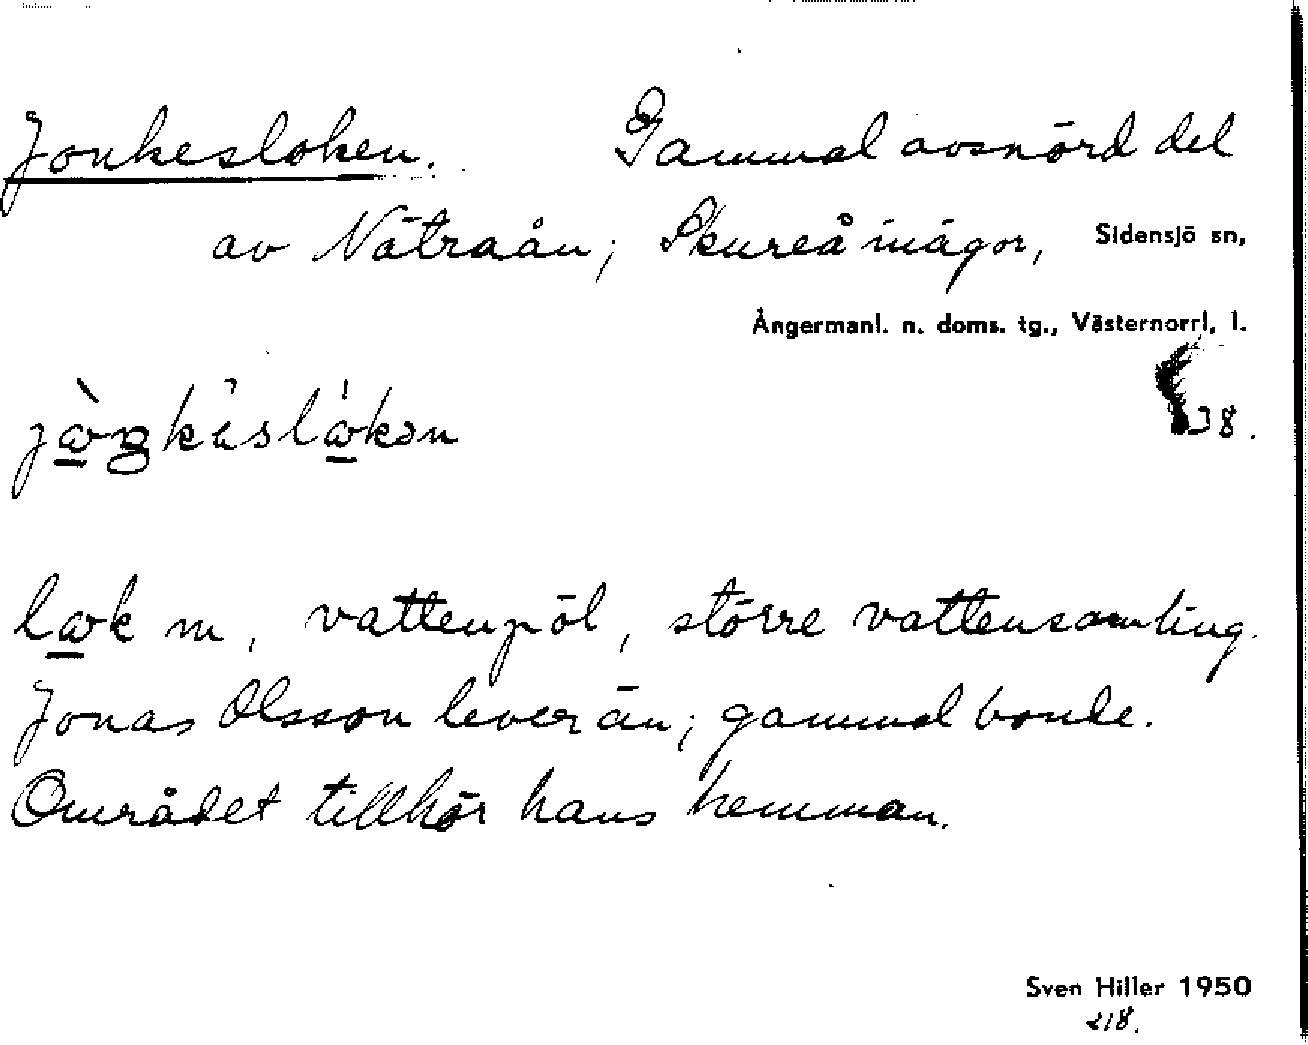 Jonkesloken. Gammal avsnörd del
av Nätraån; Skureå inägor, Sidensjö sn,
Ångermanl. n. doms. tg., Västernorrl. l.
38.
m, vattenpöl, större vattensamling.
Jonas Olsson lever än; gammal bonde.
Området tillhör hans hemman.
Sven Hiller 1950
218.